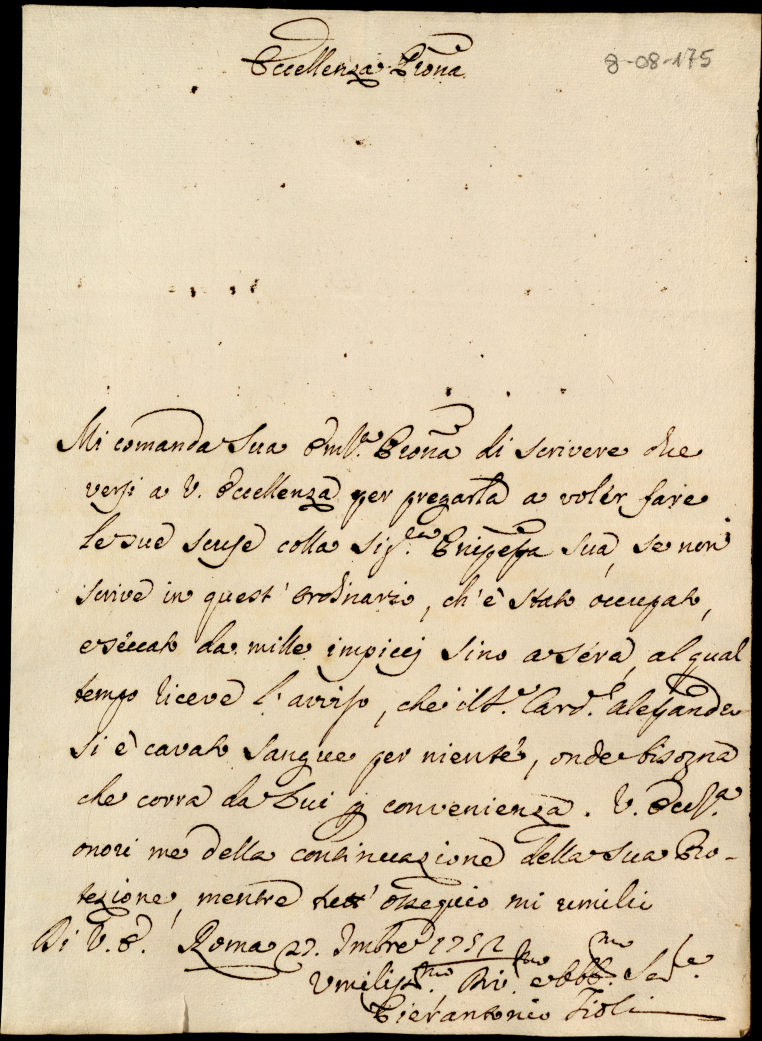 Eccellenza Prona
8-08-175
Mi comanda Sua Emza Prona di scrivere due
versi a V. Eccellenza per pregarla a volér fare
le sue scuse colla Sig.ra Enrgssa sua, se non
scrive in quest' ordinario, ch'è stato occupato,
e seccato da mille impiccj sino a sera, al qual
tempo riceve l'avviso, che il S.r Card.l Alessandro
si è cavato sangue per niente, onde bisogna
che corra da Lui p convenienza. V. Eccza
onori me della continuazione della sua Pro-
tezione, mentre tutt' ossequio mi umilio
Di V. E. Roma 27. Xmbre 1752
Umiliss.mo Div.mo e obb.mo Ser.e
Pierantonio Tioli